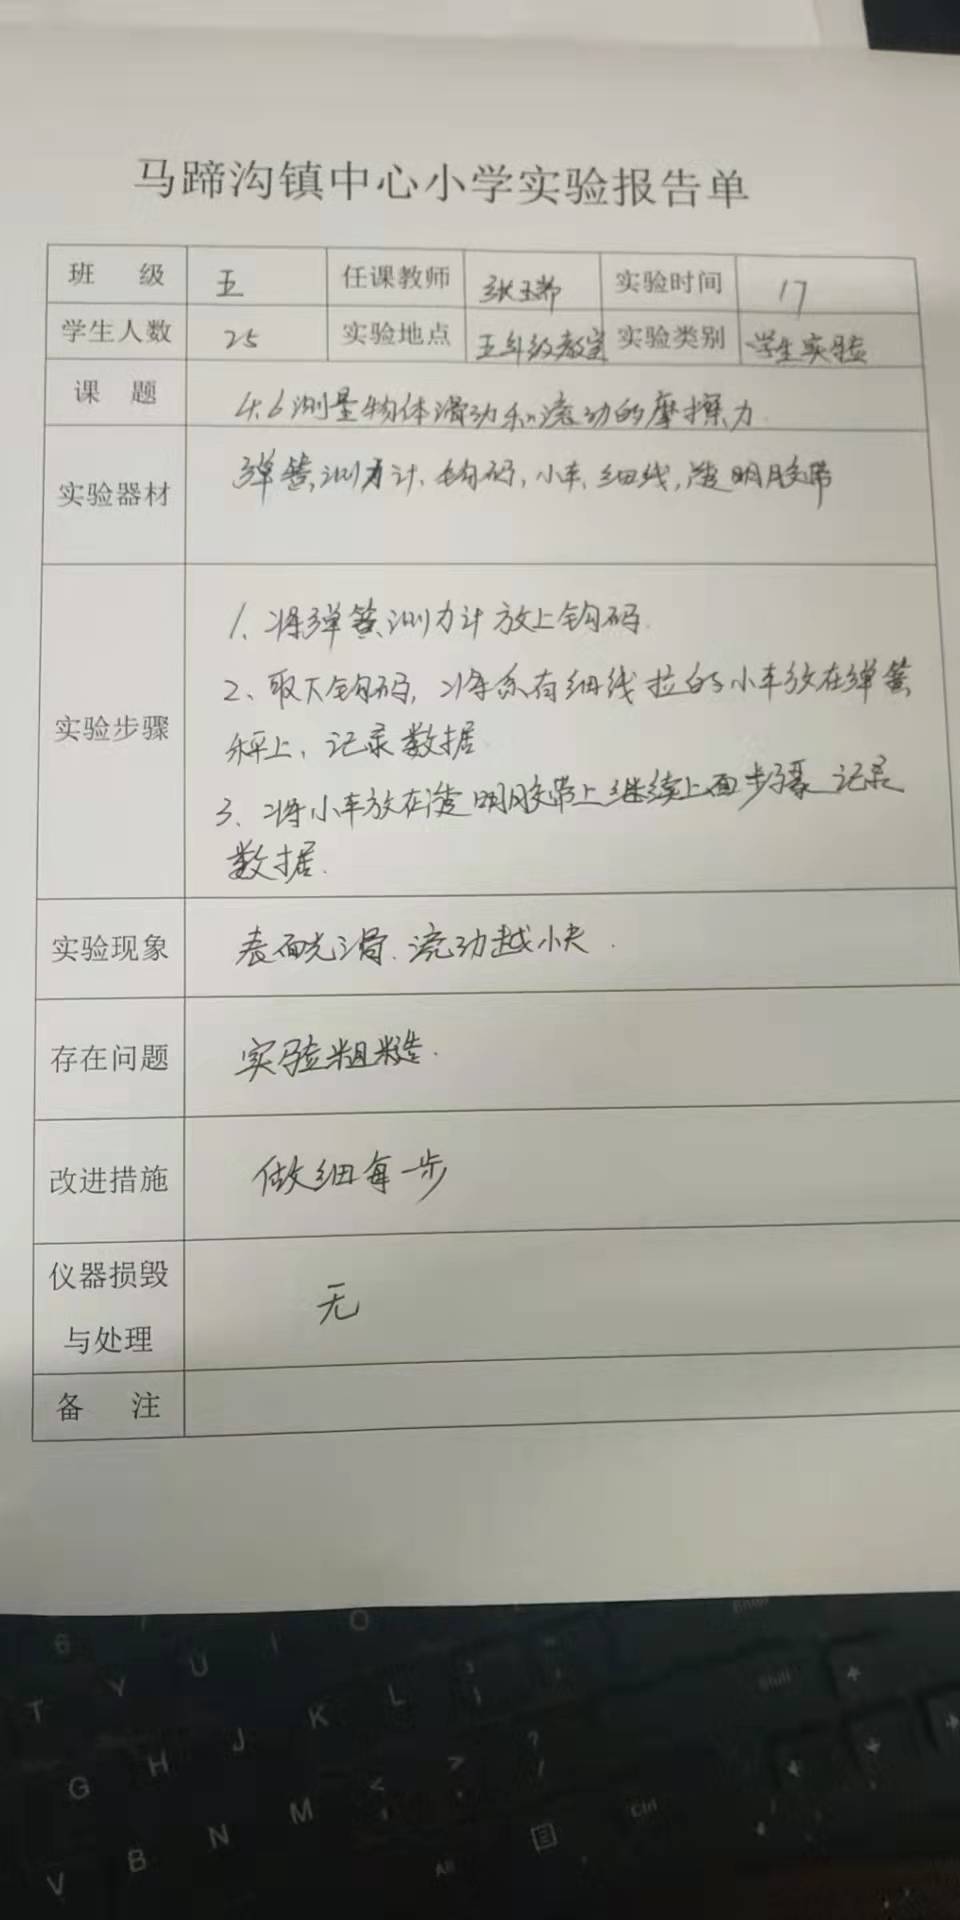 马蹄沟镇中心小学实验报告单
班 级 五 任课教师 实验时间 17
学生人数 25 实验地点 五年级教室 实验类别 学生实验
课 题 4.6测量物体滑动和滚动的摩擦力
实验器材 弹簧测力计、钩码,小车,细线,透明胶带
实验步骤
1、将弹簧测力计放上钩码.
2、取下钩码,将系有细线拉的小车放在弹簧
秤上,记录数据
3、将小车放在透明胶带上继续上面步骤 记录
数据.
实验现象 表面光滑、流动越小夫.
存在问题 实验粗糙.
改进措施 做细每一步
仪器损毁
与处理 无
备 注
6
T Y U I O
G H J K L Enter
V B N M < > ? Shift
Alt Ctrl